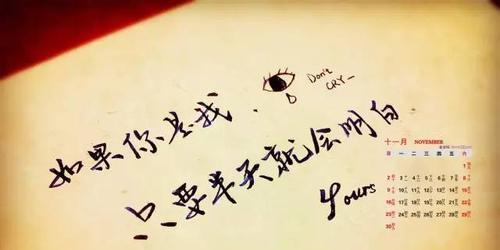 Don't
CRY~
如果你是我.
只要半天就会明白
yours
十一月 NOVEMBER
日 一 二 三 四 五 六
1
2 3 4 5 6 7 8
9 10 11 12 13 14 15
16 17 18 19 20 21 22
23 24 25 26 27 28 29
30